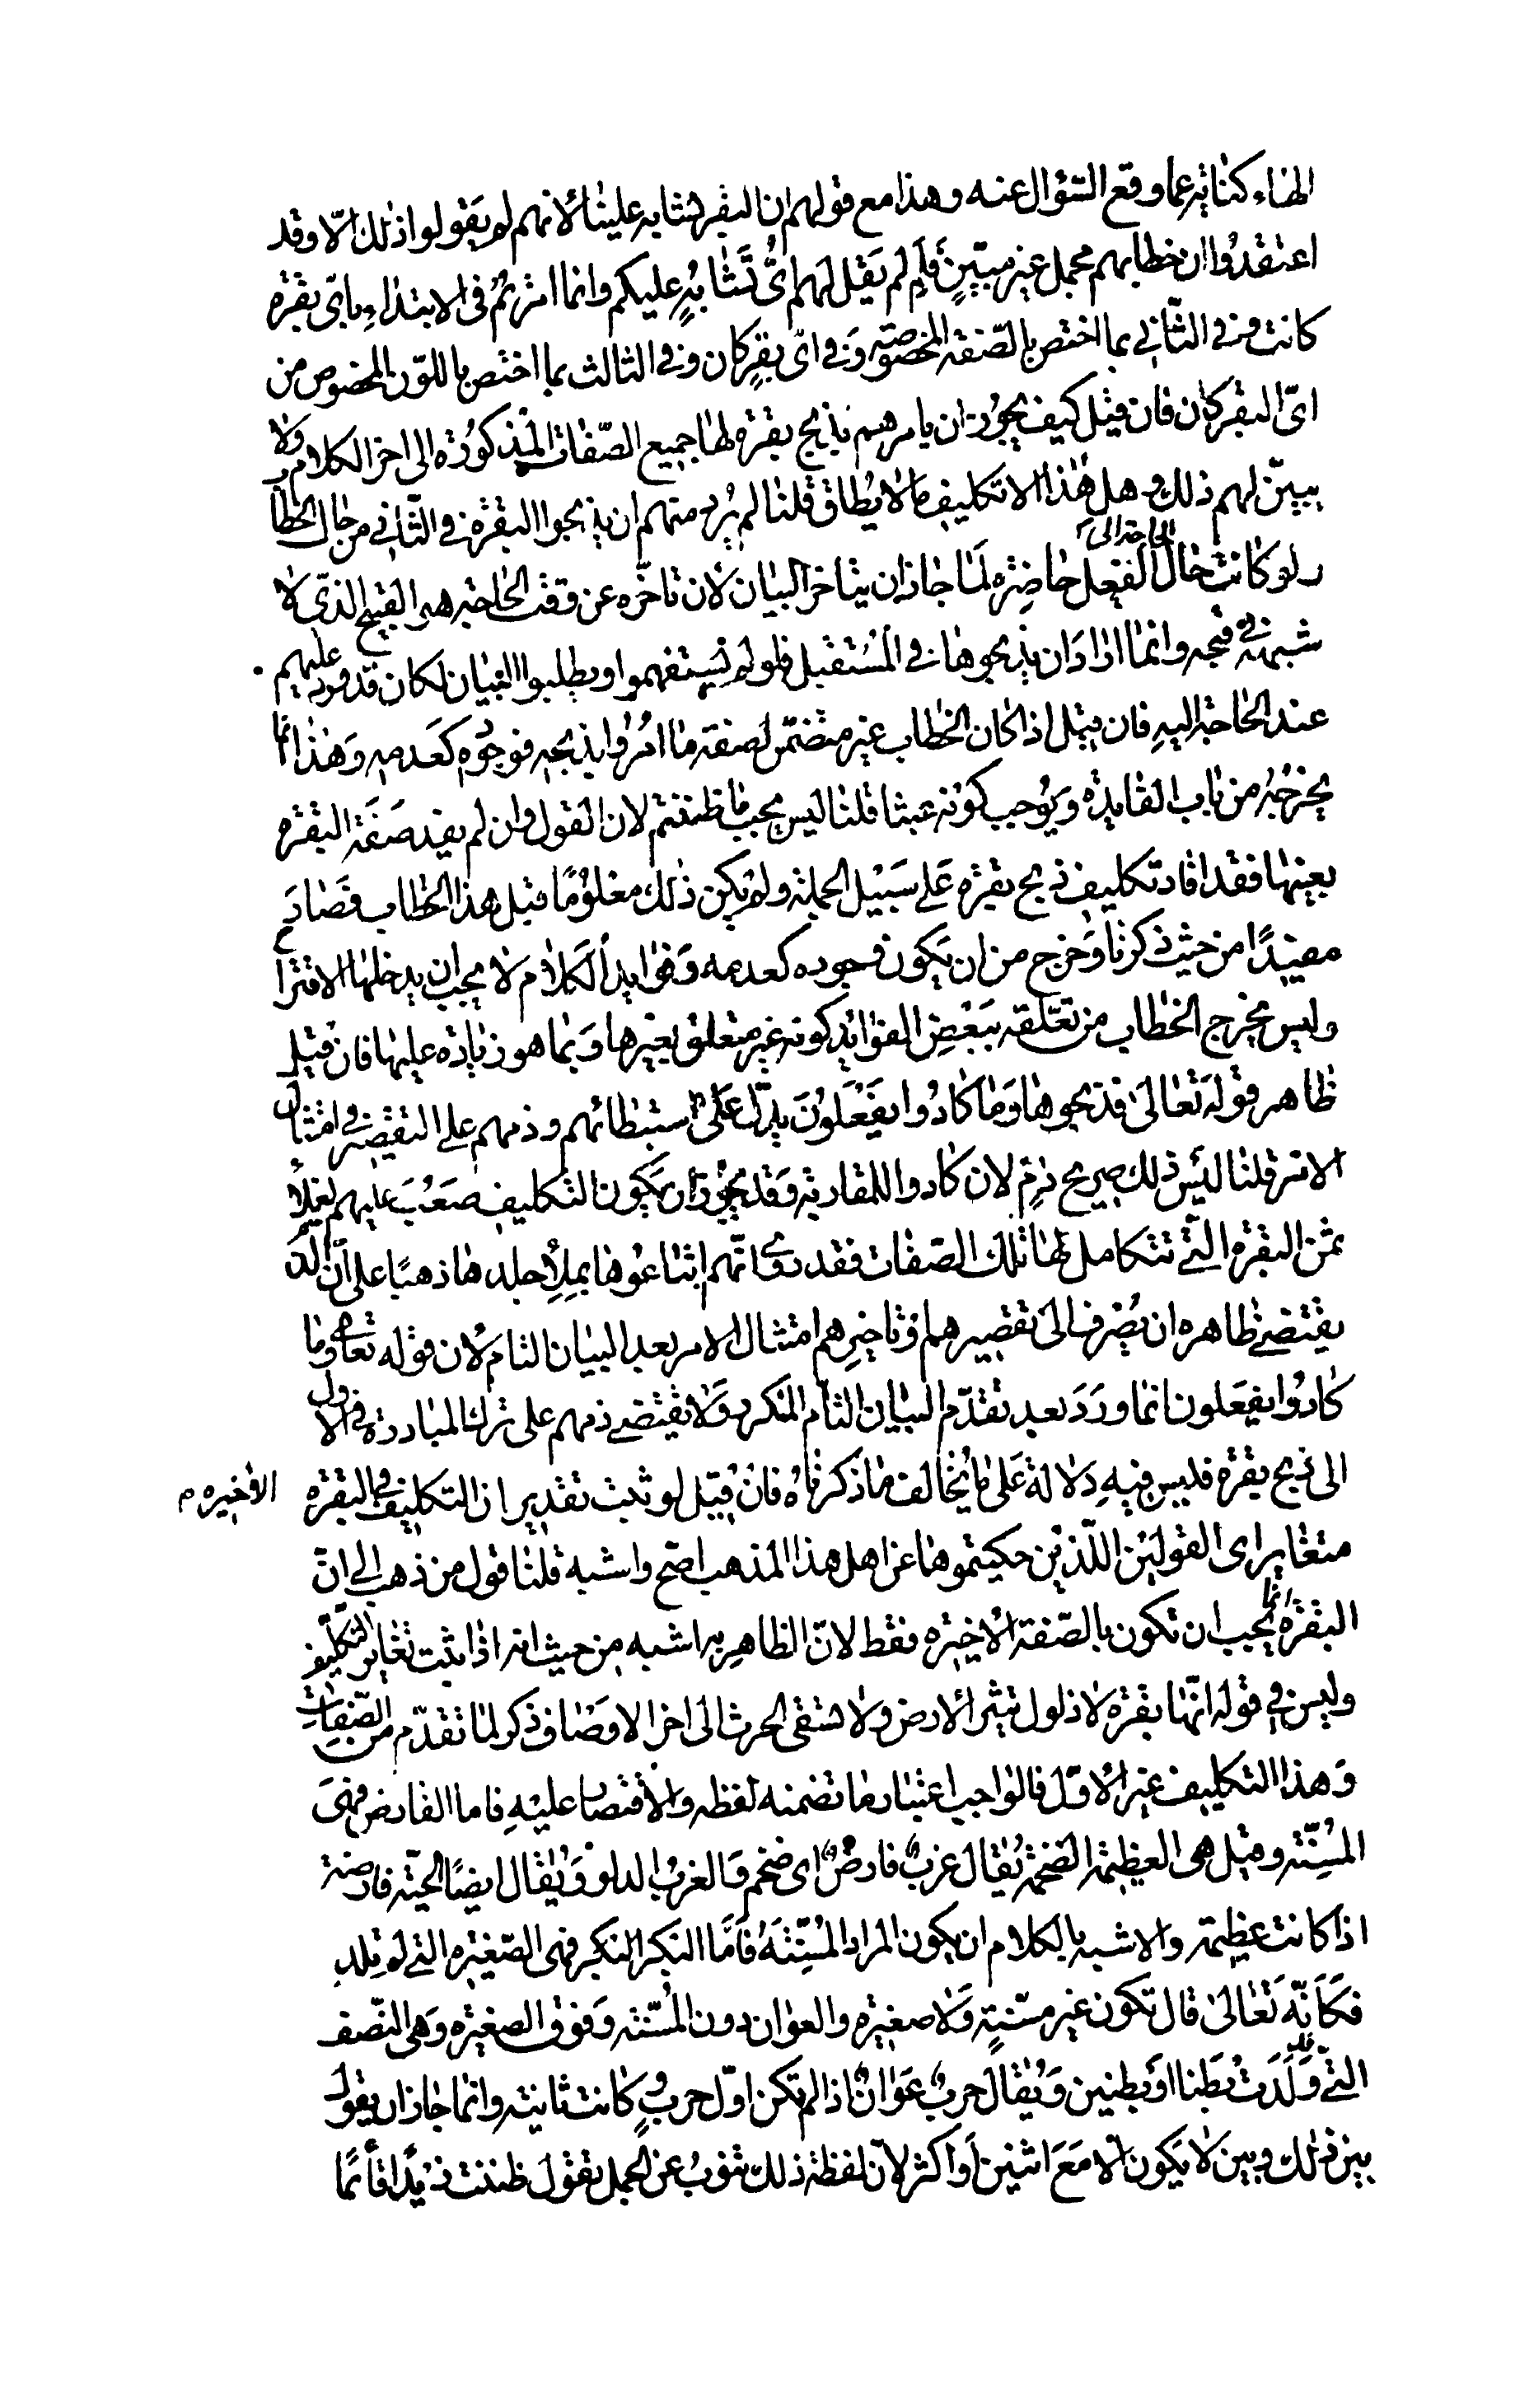 الهاء كناية عما وقع السّؤال عنه وهذا مع قولهم ان البقر تشابه علينا لانهم لم يقولوا ذلك الّا وقد
اعتقدُوا ان خطابهم مجمل غير مبيّنٍ فلِم لم يَقُل لهم اىُّ تَشٰابُهٍ عليكم وانما امرتُم فى الابتداءِ باىّ بقرة
كانت وفى الثّانى بما اختص بالصّفة المخصوصة وَفى اىّ بقرٍ كان وفى الثالث بما اختص باللون المخصوص من
اىّ البقر كان فان قيل كيف يجوُز ان يامرهم بذبح بقرة لها جميع الصّفات المذكورة الى اخر الكلام ولا
يبيّن لهم ذلك وهل هٰذا الا تكليف مالا يُطاق قلنا لم يُرد منهم ان يذبحوا البقرة فى الثّانى من حال الخطا
ولو كانت حال الحاجة الى الفعل حاضِرة لَما جاز ان يتاخر البيان لان تاخّره عن وقت الحاجة هو القبيح الذّى لا
شبهة فى قبحه وانّما اراد ان يذبحوها فى المُسْتقبل فلو لم يستفهموا ويطلبوا البيان لكان قد ورد عليهم
عند الحاجة اليهِ فان قيل اذا كان الخطاب غير متضمّن لصفة ما امرُوا بذبحه فوجوُده كعَدمه وهٰذا انما
يخرجُهُ من باب الفايدة ويوُجب كونه عبثا قلنا ليس يجب ما ظننتم لان القول وان لم يفد صَفَة البقرة
بعينها فقد افاد تكليف ذبح بقرة عَلى سَبيْل الجملة ولم يكن ذلك معلوُمًا قبل هذا الخطاب فصَار
مفيدًا من حيث ذكرنا وَخرج من ان يكون وجوده كعدمه وَفوايد الكلام لا يجب ان يدخلها الاقترا
وليس يخرج الخطاب من تعلّقه ببَعْضِ الفوايد كونه غير متعلق بغيرها وَبما هو زيادة عليها فان قيل
ظاهر قوله تعالى فذبحوها وَما كادُوا يفعَلوُنَ يدلّ عَلَى استبطائهم وذمهم على التقصير فى امتثال
الامر قلنا ليَس ذلك بصريح ذمٍّ لان كادوا للمقاربة وَقد يجوز ان يكون التكليف صَعُبَ عليهم لغلاءِ
ثمن البقرة الّتى تتكامل لها تلك الصّفات فقد روى انّهم ابتاعوُها بملِأ جلدها ذهبًا على ان الذّ
يقتضى ظاهره ان يُصْرف الى تقصيرهم وتاخيرهم امتثال الامر بعد البيان التام لان قوله تعا وما
كادُوا يفعَلون انما ورَدَ بعد تقدّم البيان التام المتكرر وَلا يقتضى ذمهم على ترك المبادرة فى الاول
الى ذبح بقرة فليس فيهِ دلالة عَلى ما يخالف ما ذكرناهُ فان قيل لو ثبت تقدير ان التكليف فى البقرة الاخيرة
متغاير اى القولين اللّذين حكيتموها عن اهل هذا المذهب اصح واشبه قلنا قول من ذهب الى انّ
البقرة انما يجب ان تكون بالصّفة الاخيرة فقط لانّ الظاهِر به اشبه من حيث انه اذا ثبت تغاير التكليف
وليس فى قوله انّها بقرة لا ذلول تثير الارض ولا تسقى الحرث الى اخر الاوصَاف ذكر لما تقدّم من الصّفات
وَهذا التكليف غير الاوّل فالواجب اعتبار ما تضمنه لفظه والاقتصار عليْهِ فاما الفارض فهى
المسُنّة وقيل هى العظيمة الضخمة يُقال غربٌ فارضٌ اى ضخم وَالغربُ الدلو وَيُقال ايضًا لحية فارضة
اذا كانت عظيمة والاشبه بالكلام ان يكون المراد المُسنّة فَاَمَّا البكر البكر فهى الصّغيرة التى لم تلد
فكَاَنّه تَعٰالىٰ قال تكون غير مسّنةٍ وَلا صغيرة والعوان دون المُسّنة وَفوق الصغيرة وَهى النّصف
التّى وَلَدَتْ بَطَنا او بطنين وَيُقال حربٌ عَوٰانٌ اذا لم تكن اوّل حربٍ وكانت ثانية وانما جاز ان يقول
بين ذلك وبين لا يَكون الّا مَعَ اثنين اَو اكثر لانّ لفظة ذلك تنوبُ عن الجمل تقول ظننت زيدًا قائمًا